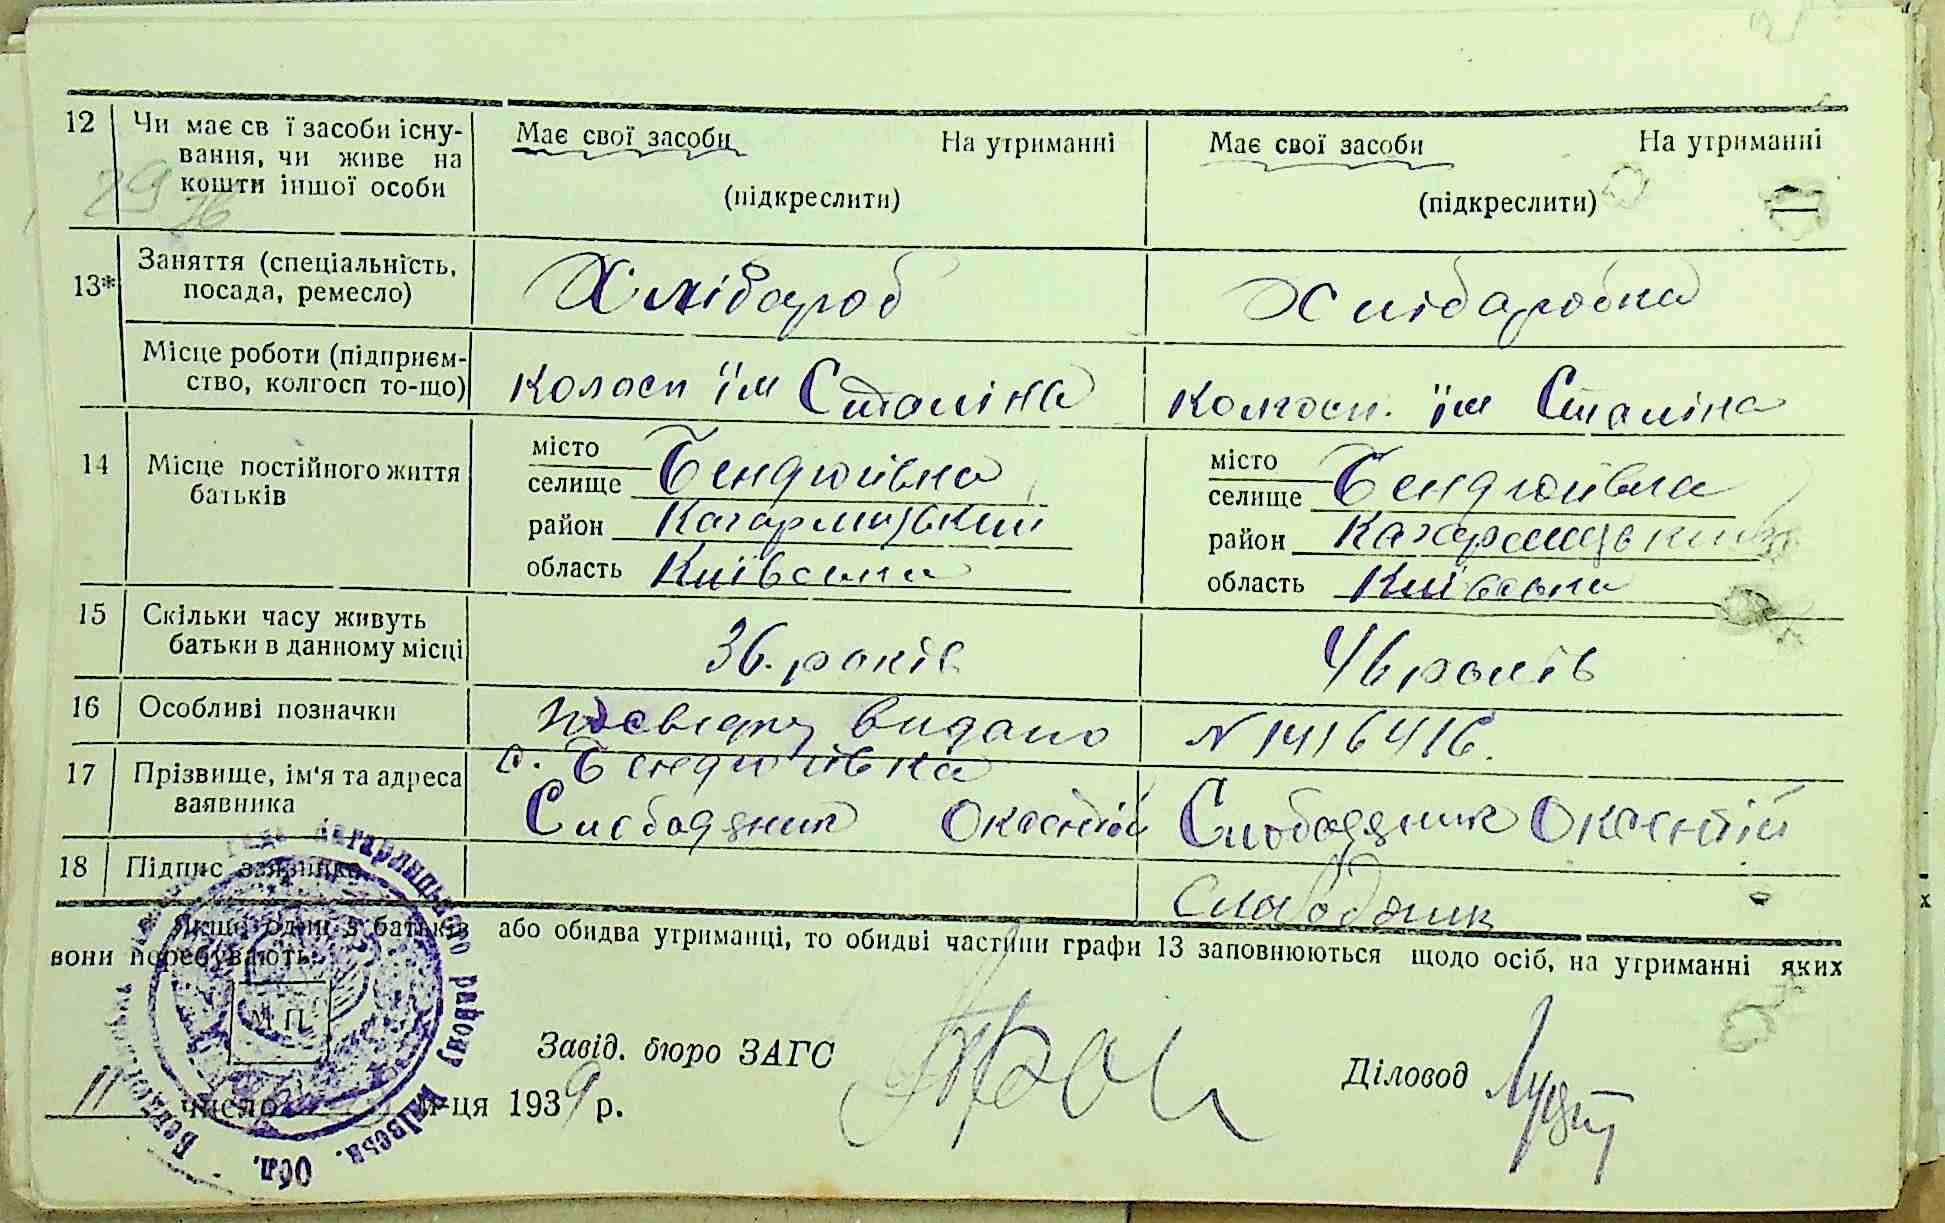 12 Чи має св ї засоби існу- Має свої засоби На утриманні Має свої засоби На утриманні
вання, чи живе на
кошти іншої особи (підкреслити) (підкреслити)
29
Заняття (спеціальність, Хлібороб Хліборобка
13* посада, ремесло)
Місце роботи (підприєм- Колосп їм Сталіна Колгосп. їм Сталіна
ство, колгосп то-що)
14 Місце постійного життя місто Бендюгівка місто Бендюгівка
батьків селище селище
район Кагарлицький район Кагарлицький
область Київська область Київська
15 Скільки часу живуть 36. років 46 років
батьки в данному місці
16 Особливі позначки посвідку видано N 1416416.
17 Прізвище, ім'я та адреса с. Бендюгівка
заявника Слободяник Оксентій Слободяник Оксентій
18 Підпис заявника Слободяник
Якщо один з батьків або обидва утриманці, то обидві частини графи 13 заповнюються щодо осіб, на утриманні яких
вони перебувають.
М П
Завід. бюро ЗАГС Діловод
11 число м-ця 1939 р.
Кагарлицького району Київськ. Обл.